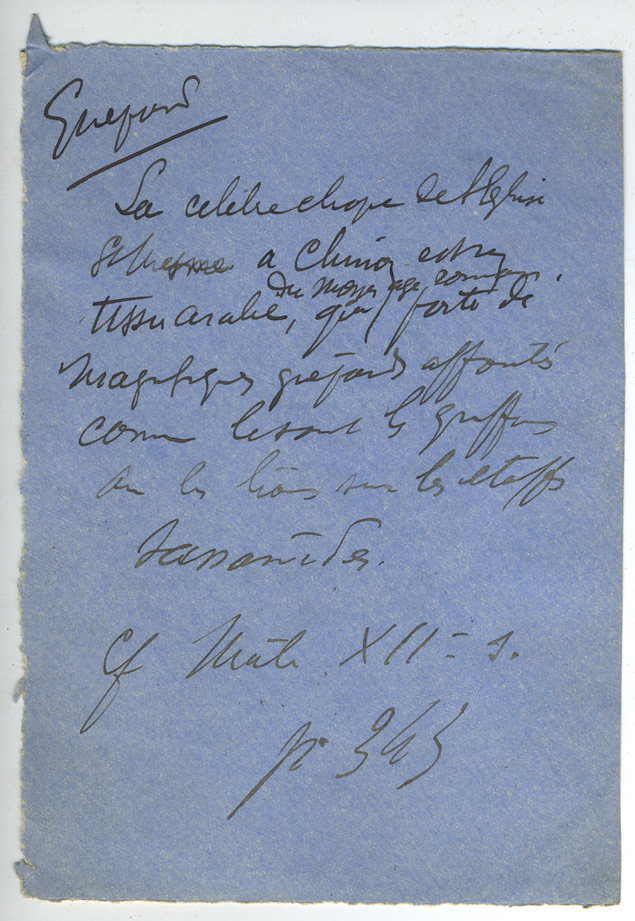 Guépard
La célèbre chape de l'Eglise
St Mesme a Chinon est un
du moyen age roman,
tissu arabe, qui porte de
magnifiques guépards affrontés
comme le sont les griffons
ou les lions sur les étoffes
sassanides.
Cf Mâle XIIe s.
p. 343